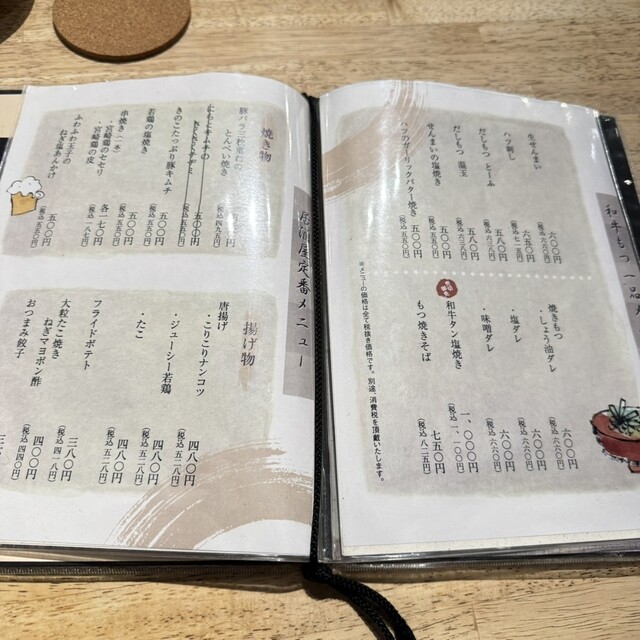 和牛もつ 一品
生せんまい 六〇〇円
(税込六六〇円)
ハツ刺し 六五〇円
(税込七一五円)
だしもつ とーふ 五八〇円
(税込六三八円)
だしもつ 温玉 五八〇円
(税込六三八円)
せんまいの塩焼き 五〇〇円
(税込五五〇円)
バター焼き 五〇〇円
(税込五五〇円)
焼きもつ
・しょうゆ油ダレ 六〇〇円
(税込六六〇円)
・塩ダレ 六〇〇円
(税込六六〇円)
・味噌ダレ 六〇〇円
(税込六六〇円)
和牛タン塩焼き 一、〇〇〇円
(税込一、一〇〇円)
もつ焼きそば 七五〇円
(税込八二五円)
※メニューの価格は全て税抜き価格です。別途、消費税を頂戴いたします。
居酒屋定番メニュー
焼き物
豚バラ
とんぺい焼き 四五〇円
(税込四九五円)
五〇〇円
きのこたっぷり豚キムチ 五〇〇円
(税込五五〇円)
若鶏の塩焼き 五〇〇円
(税込五五〇円)
串焼き(一本)
・宮崎鶏のセセリ
・宮崎鶏の皮 各一七〇円
(税込一八七円)
ふわふわ玉子の
ねぎ塩あんかけ 五〇〇円
(税込五五〇円)
揚げ物
唐揚げ
・こりこりナンコツ 四八〇円
(税込五二八円)
・ジューシー若鶏 四八〇円
(税込五二八円)
・たこ 四八〇円
(税込五二八円)
フライドポテト 三八〇円
(税込四一八円)
大粒たこ焼き
ねぎマヨポン酢 四〇〇円
(税込四四〇円)
おつまみ餃子